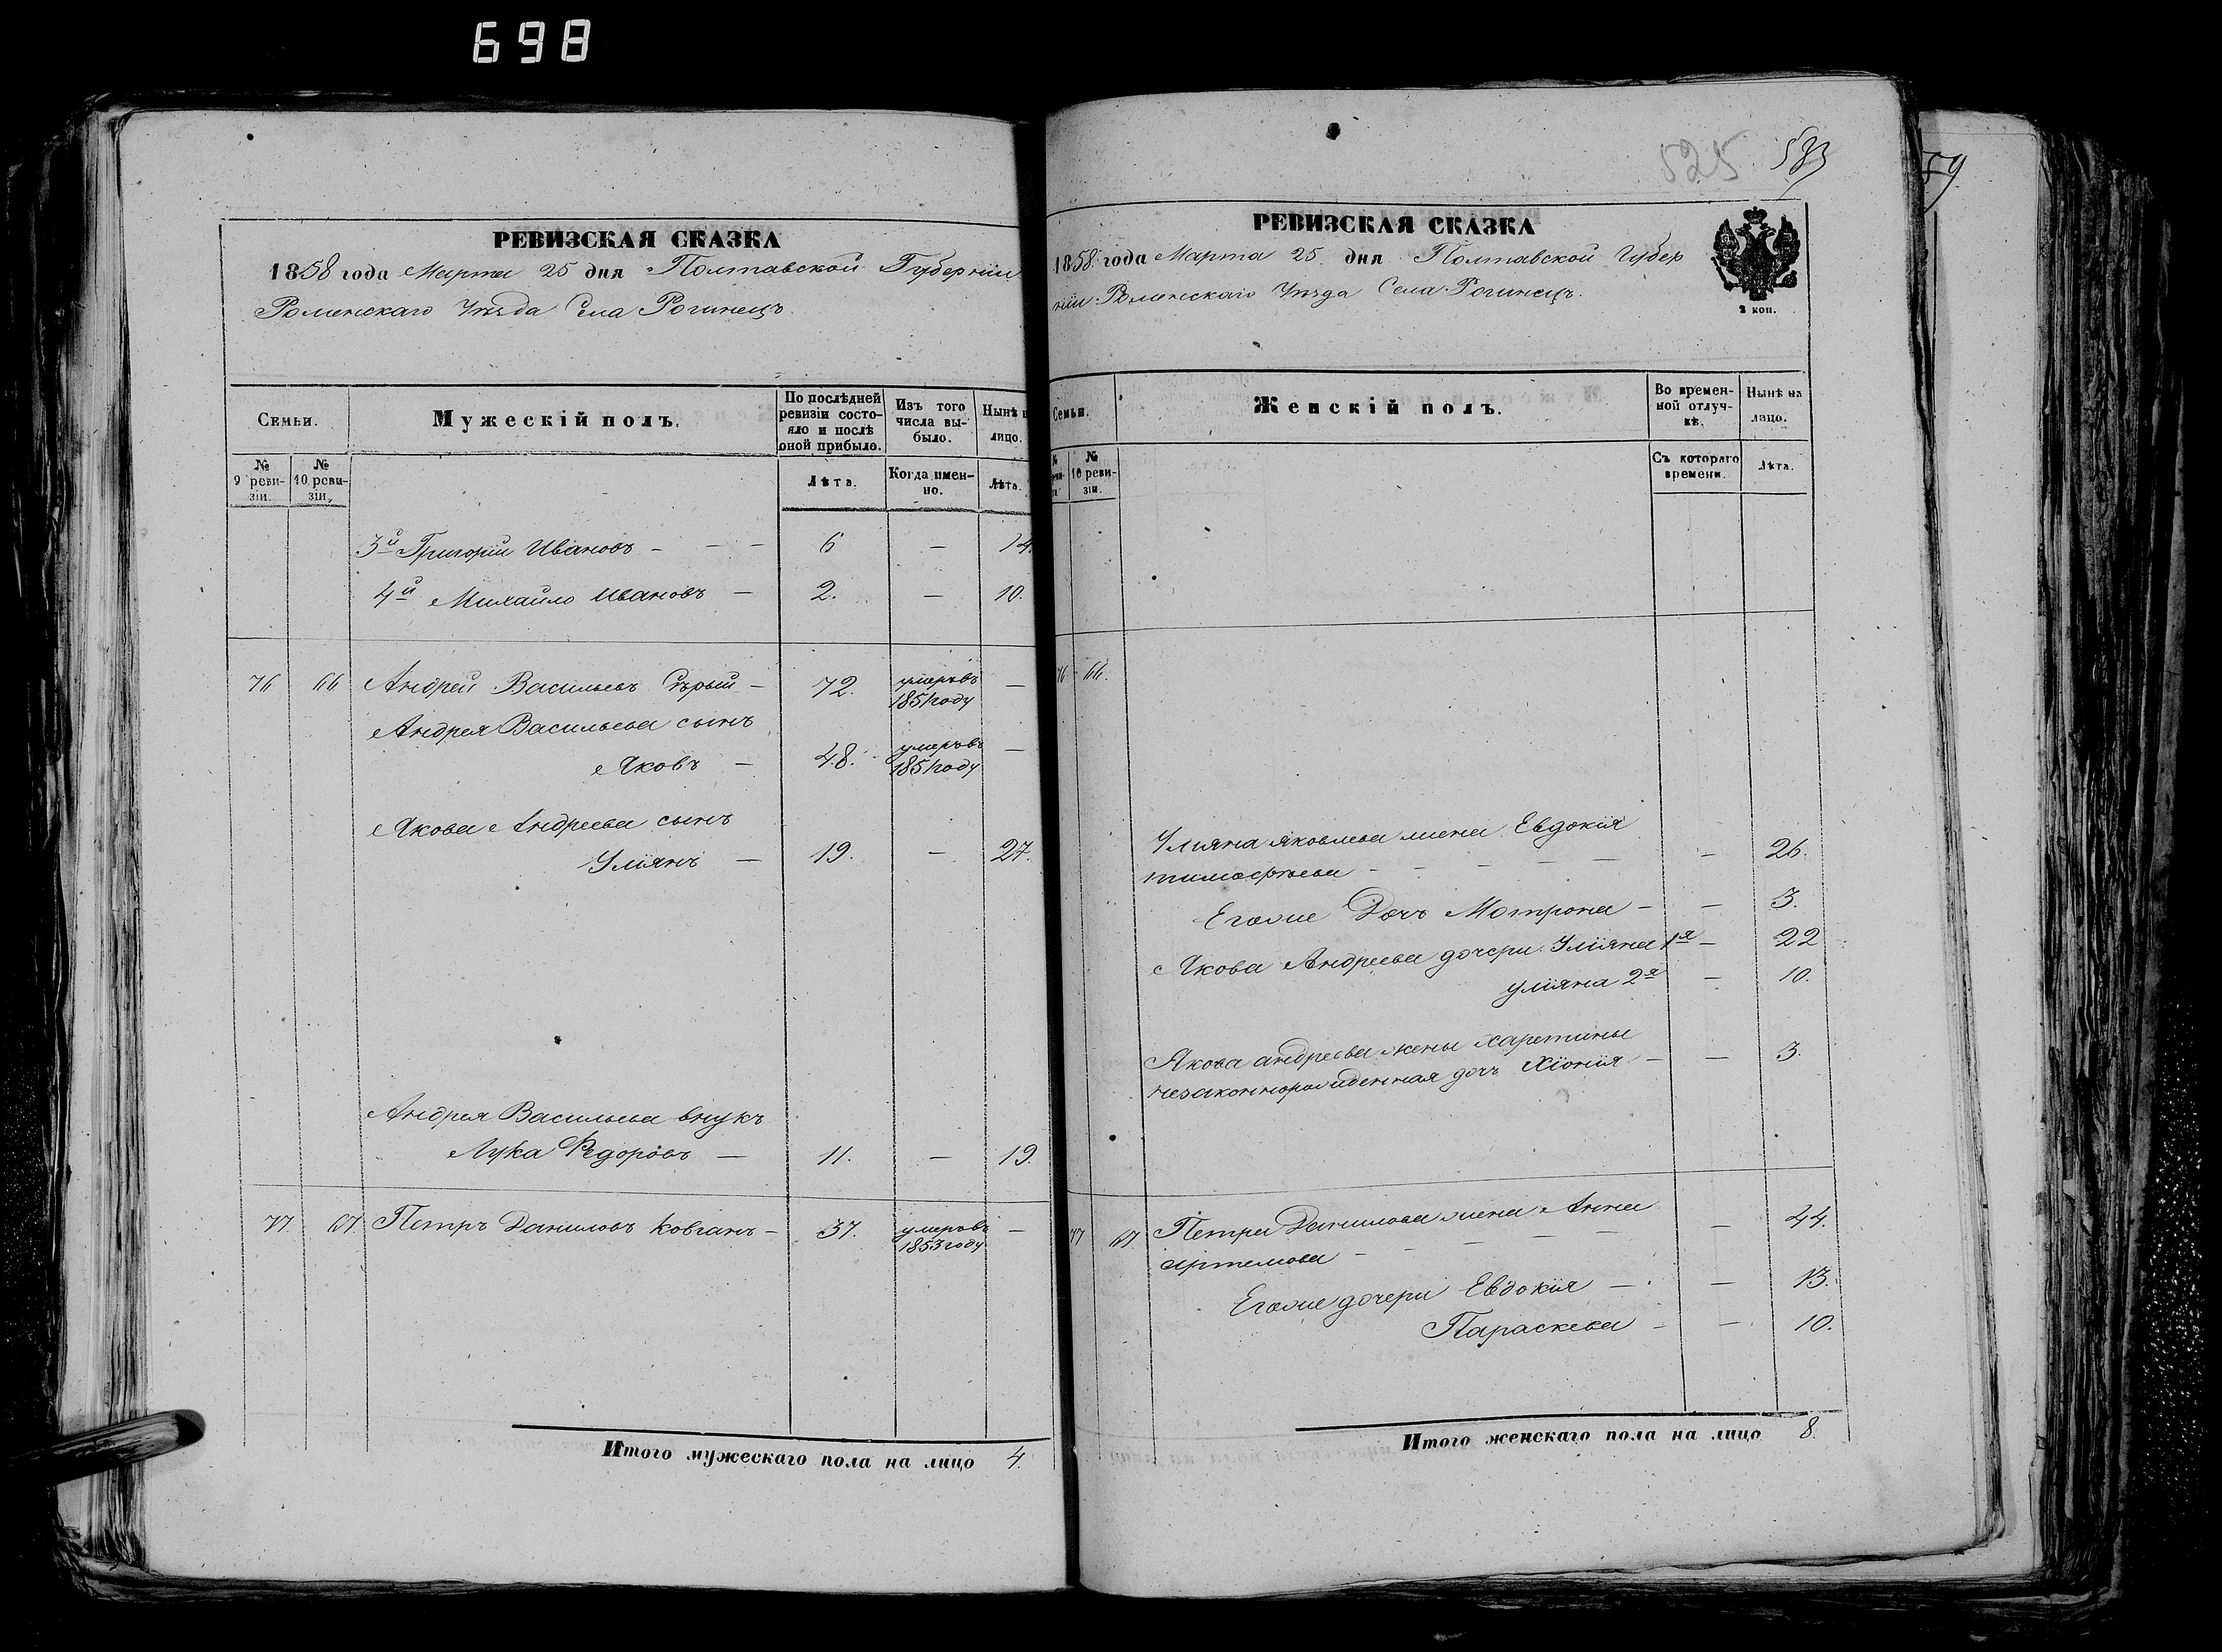 698
РЕВИЗСКАЯ СКАЗКА
1858 года Марта 25 дня Полтавской Губерніи
Роменскаго Уѣзда Села Рогинецъ.
Семьи.
Мужескій полъ.
По послѣдней ревизіи состояло и послѣ оной прибыло.
Изъ того числа выбыло.
Нынѣ
лицо.
№ 9 ревизіи.
№ 10 ревизіи.
Лѣта.
Когда именно.
Лѣта.
3й Григорій Ивановъ - - - 6 — 14.
4й Михайло Ивановъ — 2. — 10.
76 66 Андрей Васильевъ Сѣрый — 72. умеръ въ 1851 году —
Андрея Васильева сынъ
Яковъ — 48. умеръ въ 1851 году —
Якова Андреева сынъ
Улiянъ — 19. — 27.
Андрея Васильева внукъ
Лука Ѳедоровъ — 11. — 19.
77. 67. Петръ Даниловъ Ковганъ — 37. умеръ въ 1853 году —
Итого мужескаго пола на лицо 4.
525 583
59
РЕВИЗСКАЯ СКАЗКА
1858. года Марта 25. дня Полтавской Губер
ніи Роменскаго Уѣзда Села Рогинецъ.
2 коп.
Семьи.
Женскій полъ.
Во временной отлучкѣ.
Нынѣ на лицо.
№
№ 10 ревизіи.
Съ котораго времени.
Лѣта.
76 66.
Улiяна Яковлева жена Евдокія
тимофѣева - - - - — — 26.
Егоже Дочь Мотрона — — 3.
Якова Андреева дочери Улiяна 1я — 22
улiяна 2я — 10.
Якова андреева жены харетины
незаконнорожденная дочь Хіонія — — 3.
77 67. Петра Данилова жена Анна
артемова - - - - — 44.
Егоже дочери Евдокія — — 13.
Параскева — — 10.
Итого женскаго пола на лицо 8.